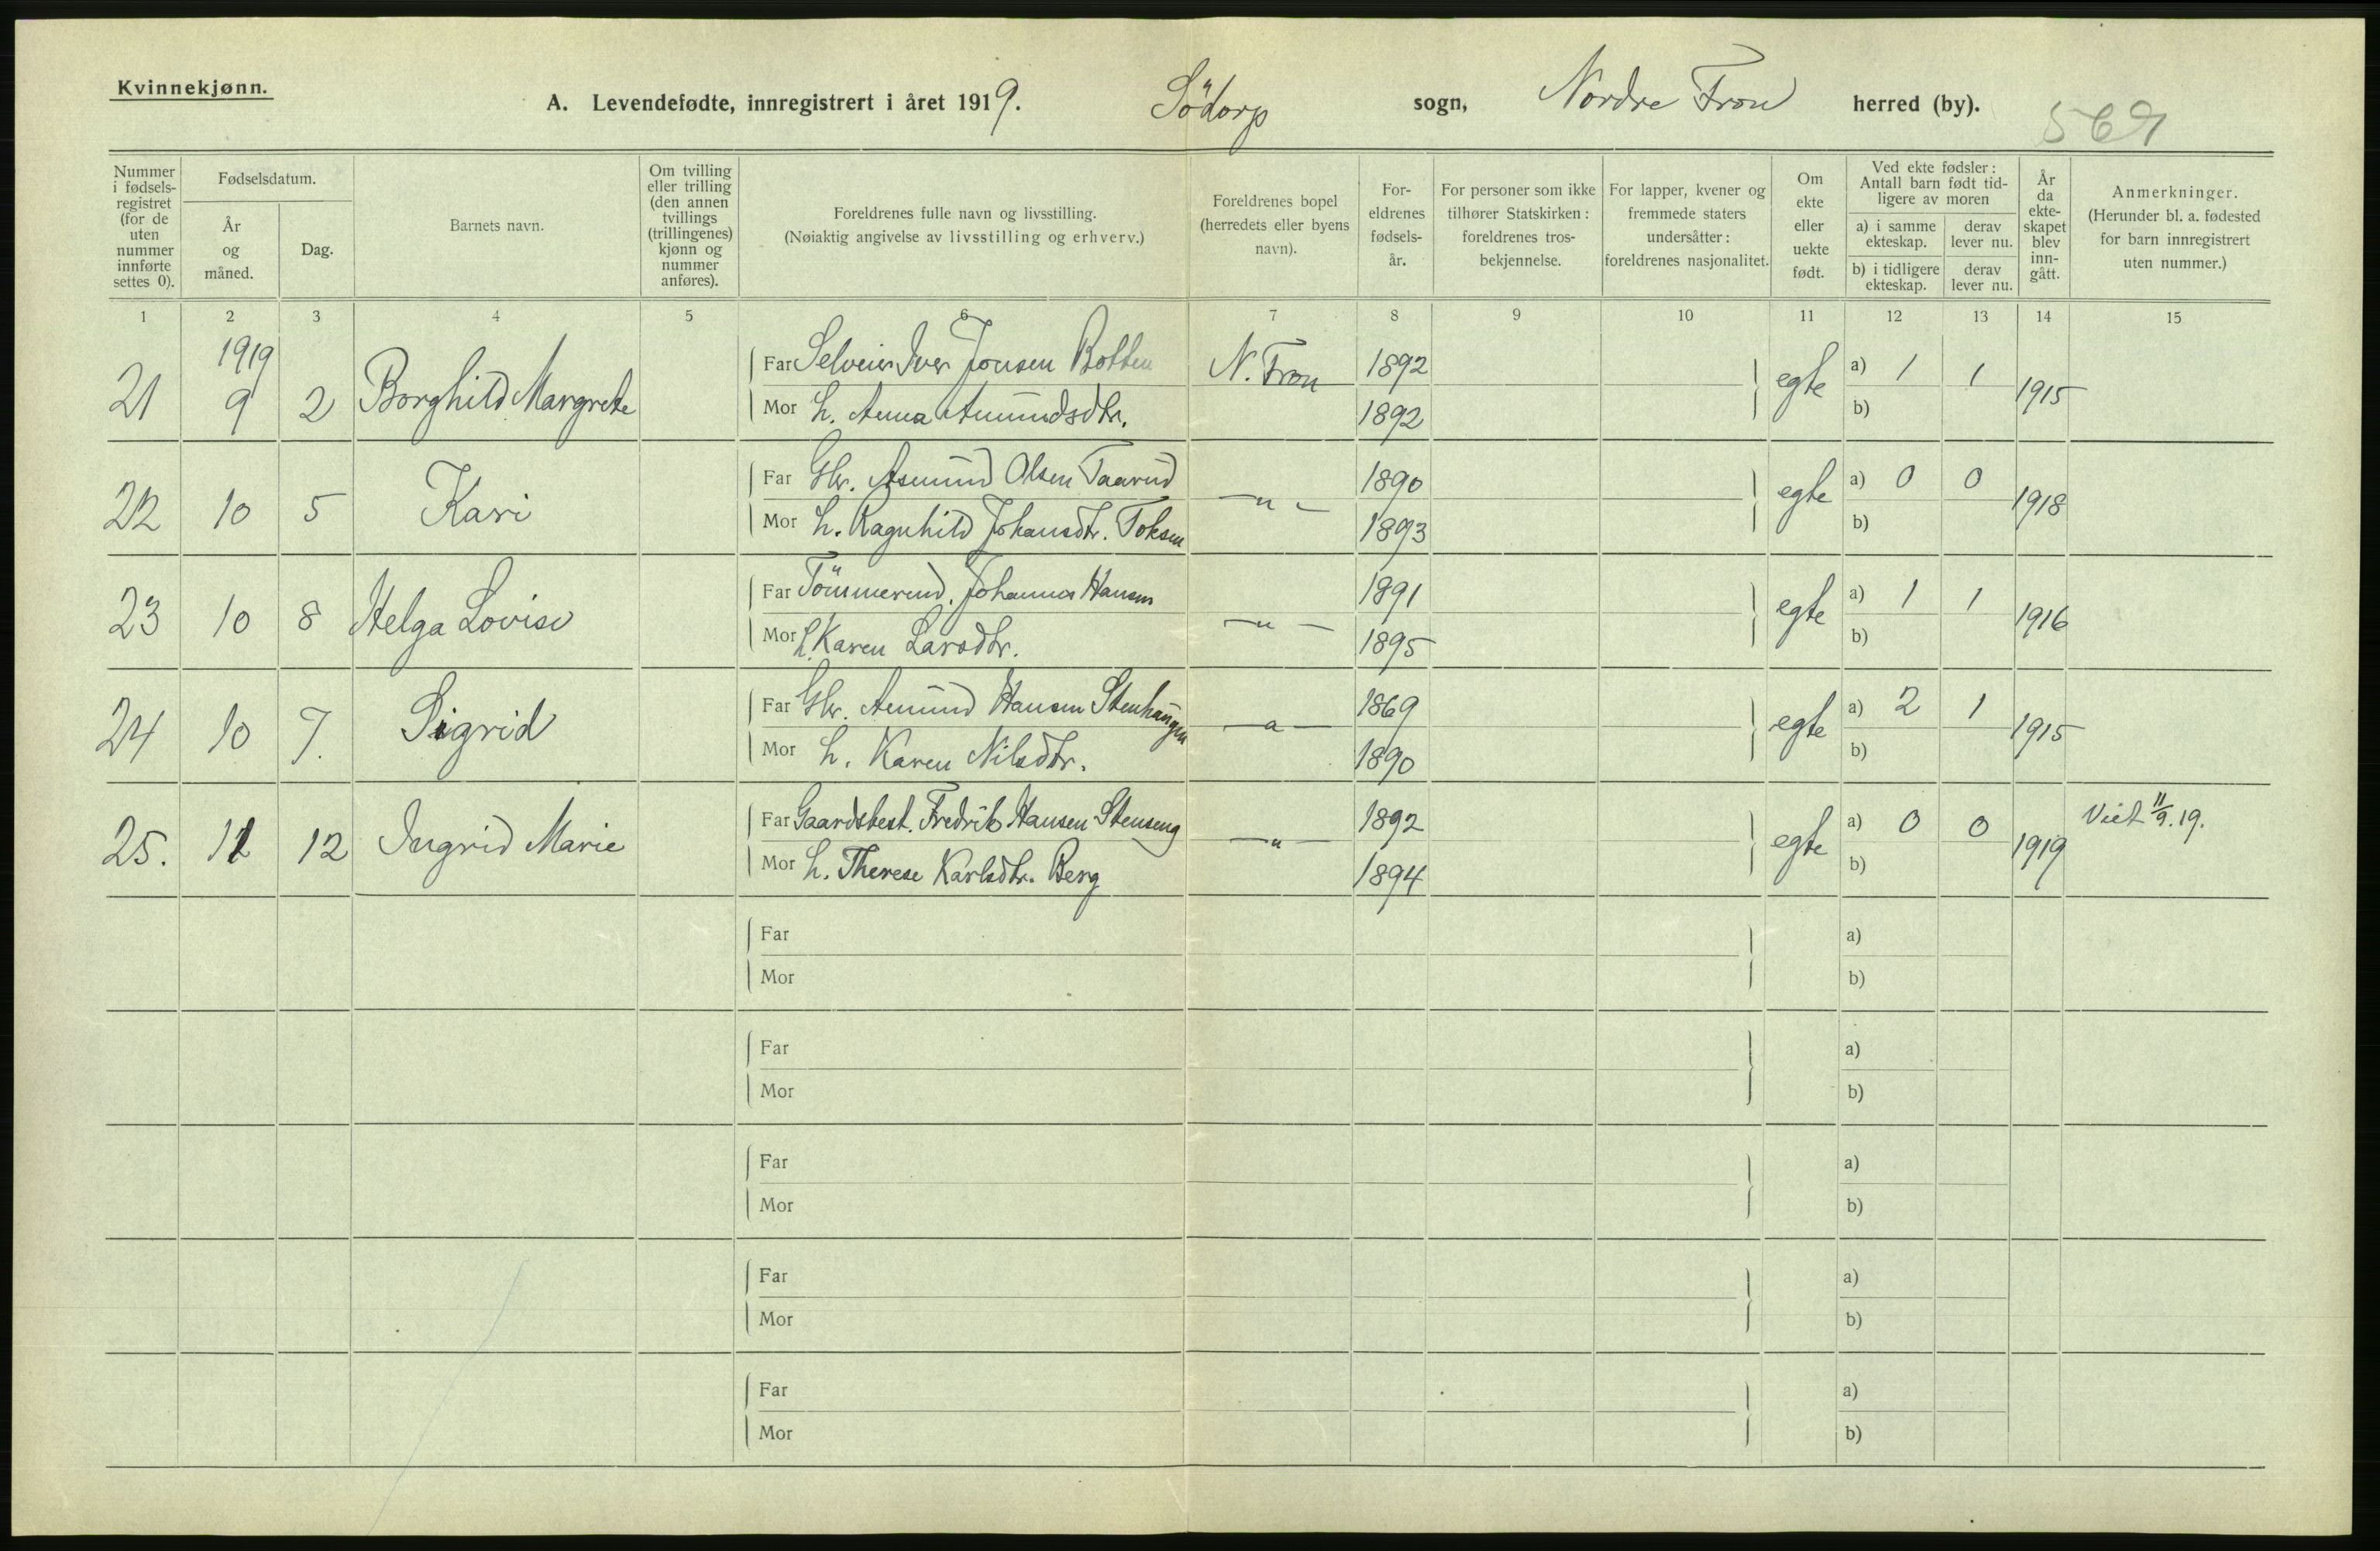 Kvinnekjønn.
A. Levendefødte, innregistrert i året 1919. Södorp sogn, Nordre Fron herred (by). 569
Nummer i fødselsregistret (for de uten nummer innførte settes 0).
Fødselsdatum.
År og måned.
Dag.
Barnets navn.
Om tvilling eller trilling (den annen tvillings (trillingenes) kjønn og nummer anføres).
Foreldrenes fulle navn og livsstilling.
(Nøiaktig angivelse av livsstilling og erhverv.)
Foreldrenes bopel (herredets eller byens navn).
Foreldrenes fødselsår.
For personer som ikke tilhører Statskirken: foreldrenes trosbekjennelse.
For lapper, kvener og fremmede staters undersåtter: foreldrenes nasjonalitet.
Om ekte eller uekte født.
Ved ekte fødsler: Antall barn født tidligere av moren
a) i samme ekteskap. derav lever nu.
b) i tidligere ekteskap. derav lever nu.
År da ekteskapet blev inngått.
Anmerkninger.
(Herunder bl. a. fødested for barn innregistrert uten nummer.)
1 2 3 4 5 6 7 8 9 10 11 12 13 14 15
1919
21 9 2 Borghild Margrete Far Selveier Iver Jonsen Botten N. Fron 1892 egte a) 1 1 1915
Mor h. Anna Amundsdtr. 1892 b)
22 10 5 Kari Far Gbr. Asmund Olsen Taarud — " — 1890 egte a) 0 0 1918
Mor h. Ragnhild Johansdtr. Toksen 1893 b)
23 10 8 Helga Lovise Far Tömmermd. Johannes Hansen — " — 1891 egte a) 1 1 1916
Mor h. Karen Larsdtr. 1895 b)
24 10 7. Sigrid Far Gbr. Amund Hansen Stenhaugen — " — 1869 egte a) 2 1 1915
Mor h. Karen Nilsdtr. 1890 b)
25. 12 12 Ingrid Marie Far Gaardsbest. Fredrik Hansen Stenseng — " — 1892 egte a) 0 0 1919 Viet 11/9.19.
Mor h. Therese Karlsdtr. Berg 1894 b)
Far a)
Mor b)
Far a)
Mor b)
Far a)
Mor b)
Far a)
Mor b)
Far a)
Mor b)